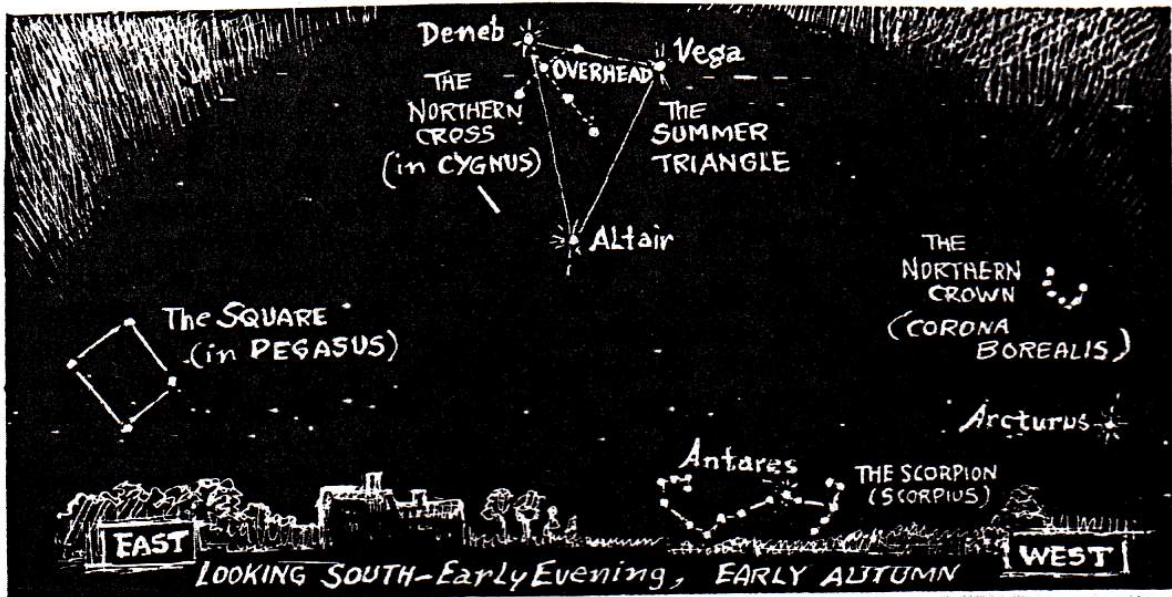 Deneb
OVERHEAD
Vega
THE
NORTHERN
CROSS
(in CYGNUS)
The
SUMMER
TRIANGLE
ALtair
THE
NORTHERN
CROWN
(CORONA
BOREALIS)
The SQUARE
(in PEGASUS)
Arcturus
Antares
THE SCORPION
(SCORPIUS)
EAST
WEST
LOOKING SOUTH-Early Evening, EARLY AUTUMN